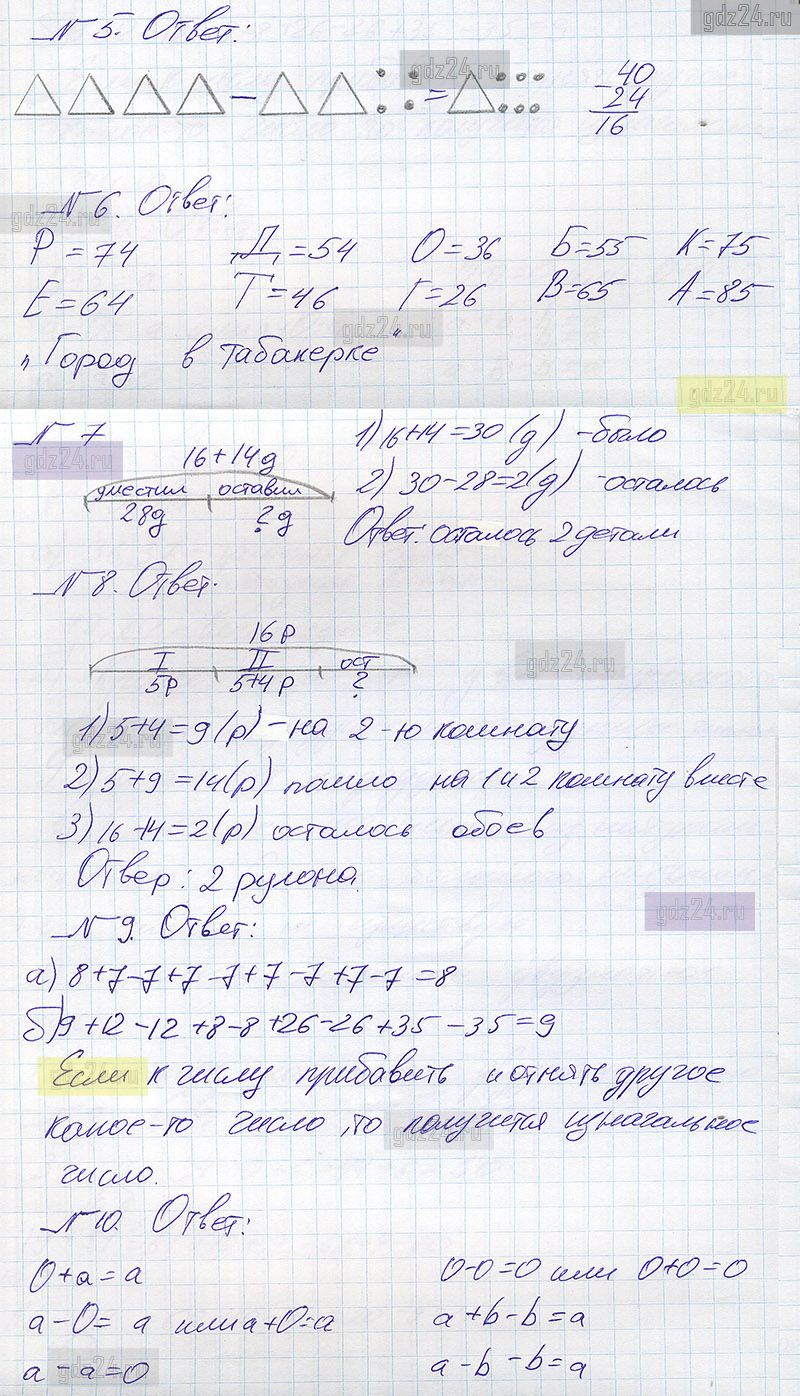 gdz24.ru
№ 5. Ответ:
gdz24.ru
— =
40
- 24
16
gdz24.ru
№ 6. Ответ:
Р = 74 Д = 54 О = 36 Б = 55 К = 75
Е = 64 Т = 46 Г = 26 В = 65 А = 85
gdz24.ru
„Город в табакерке“
gdz24.ru
№ 7
gdz24.ru
16 + 14д
уместил оставил
28д ? д
1) 16 + 14 = 30 (д) - было
2) 30 - 28 = 2 (д) - осталось
Ответ: осталось 2 детали
№ 8. Ответ.
16 р
I II ост
5р 5+4 р ?
gdz24.ru
gdz24.ru
1) 5 + 4 = 9 (р) - на 2-ю комнату
2) 5 + 9 = 14 (р) пошло на 1 и 2 комнату вместе
3) 16 - 14 = 2 (р) осталось обоев
Ответ: 2 рулона.
gdz24.ru
№ 9. Ответ:
а) 8 + 7 - 7 + 7 - 7 + 7 - 7 + 7 - 7 = 8
б) 9 + 12 - 12 + 8 - 8 + 26 - 26 + 35 - 35 = 9
Если к числу прибавить и отнять другое
какое-то число, то получится изначальное
gdz24.ru
число.
№ 10. Ответ:
0 + а = а 0 - 0 = 0 или 0 + 0 = 0
а - 0 = а или а + 0 = а а + b - b = а
а - а = 0 а - b - b = а
gdz24.ru